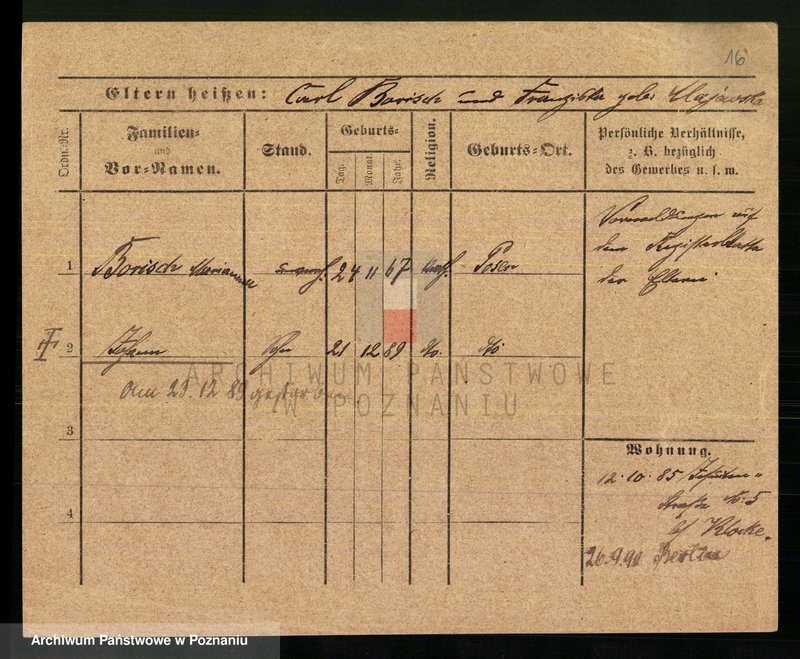 16
Eltern heißen: Carl Borisch und Franziska geb: Majewska
Ordn.-Nr.
Familien-
und
Vor-Namen.
Stand.
Geburts-
Tag.
Monat.
Jahr.
Religion.
Geburts-Ort.
Persönliche Verhältnisse,
z. B. bezüglich
des Gewerbes u. s. w.
1 Borisch Marianna 24 11 67 kath. Posen
auf
dem
der Eltern
2 Johann Sohn 21 12 89 do. do
Am 23.12 89 gestorben
3
Wohnung.
12.10.85
Straße No. 5
b/ Klocke.
4
26.9.90 Berlin
ARCHIWUM PAŃSTWOWE
W POZNANIU
Archiwum Państwowe w Poznaniu